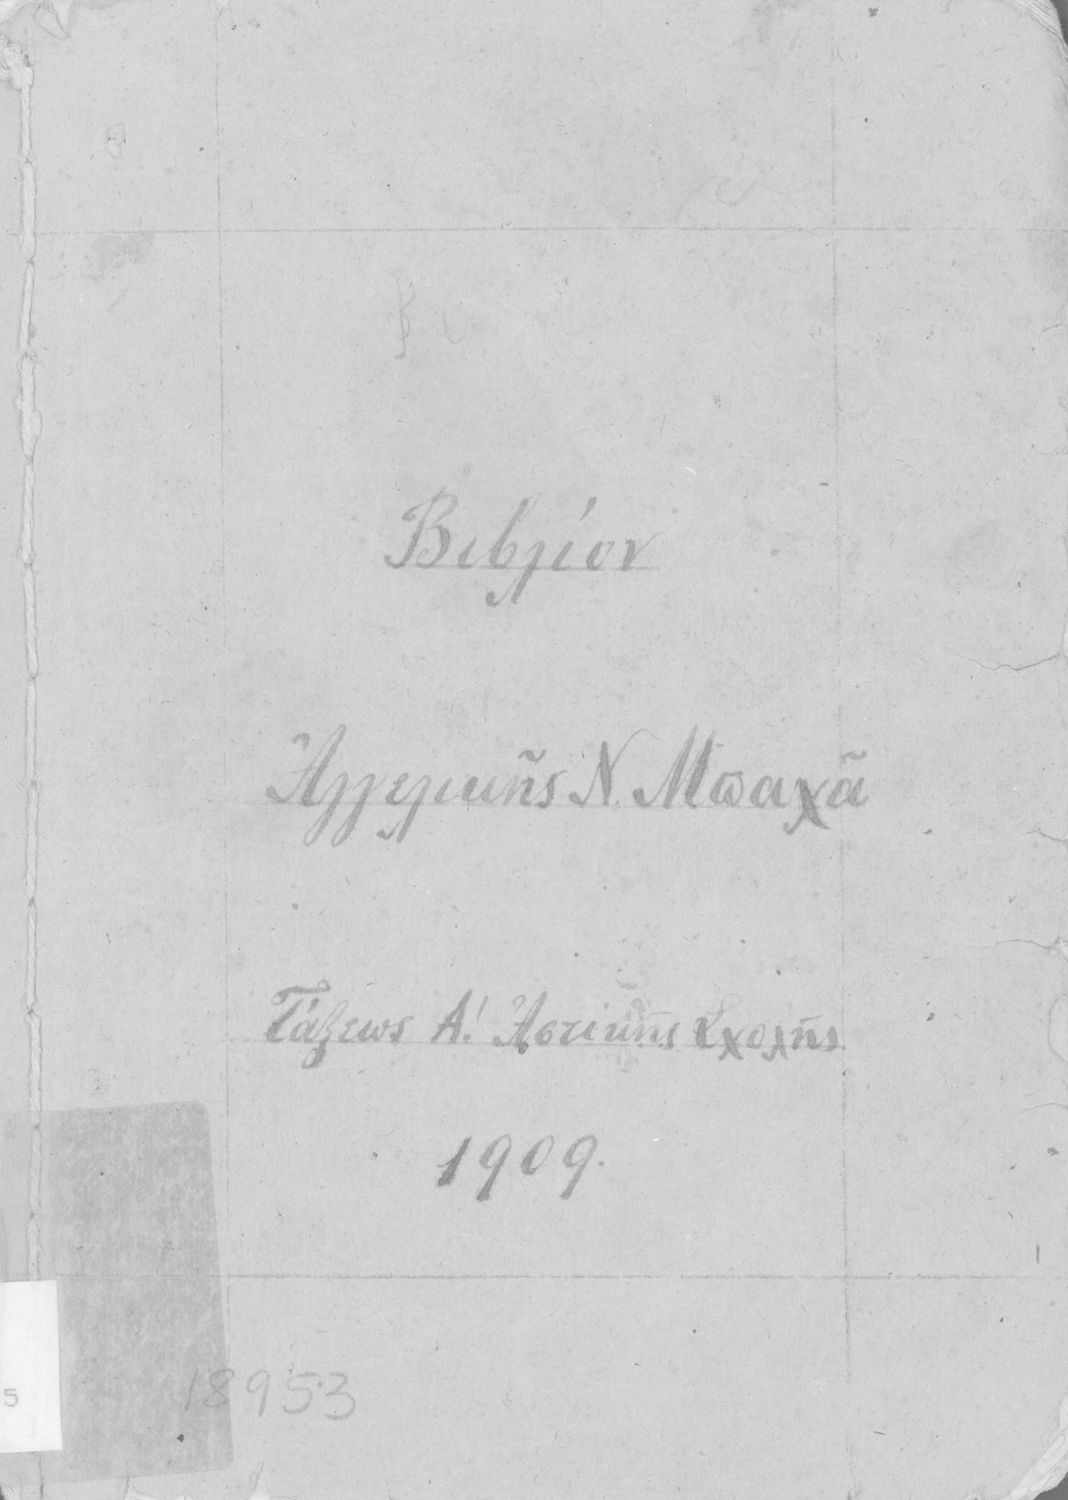 Βιβλίον
Ἀγγελικῆς Ν. Μπαχᾶ
Τάξεως Α! Ἀστικῆς Σχολῆς
1909.
18953
5